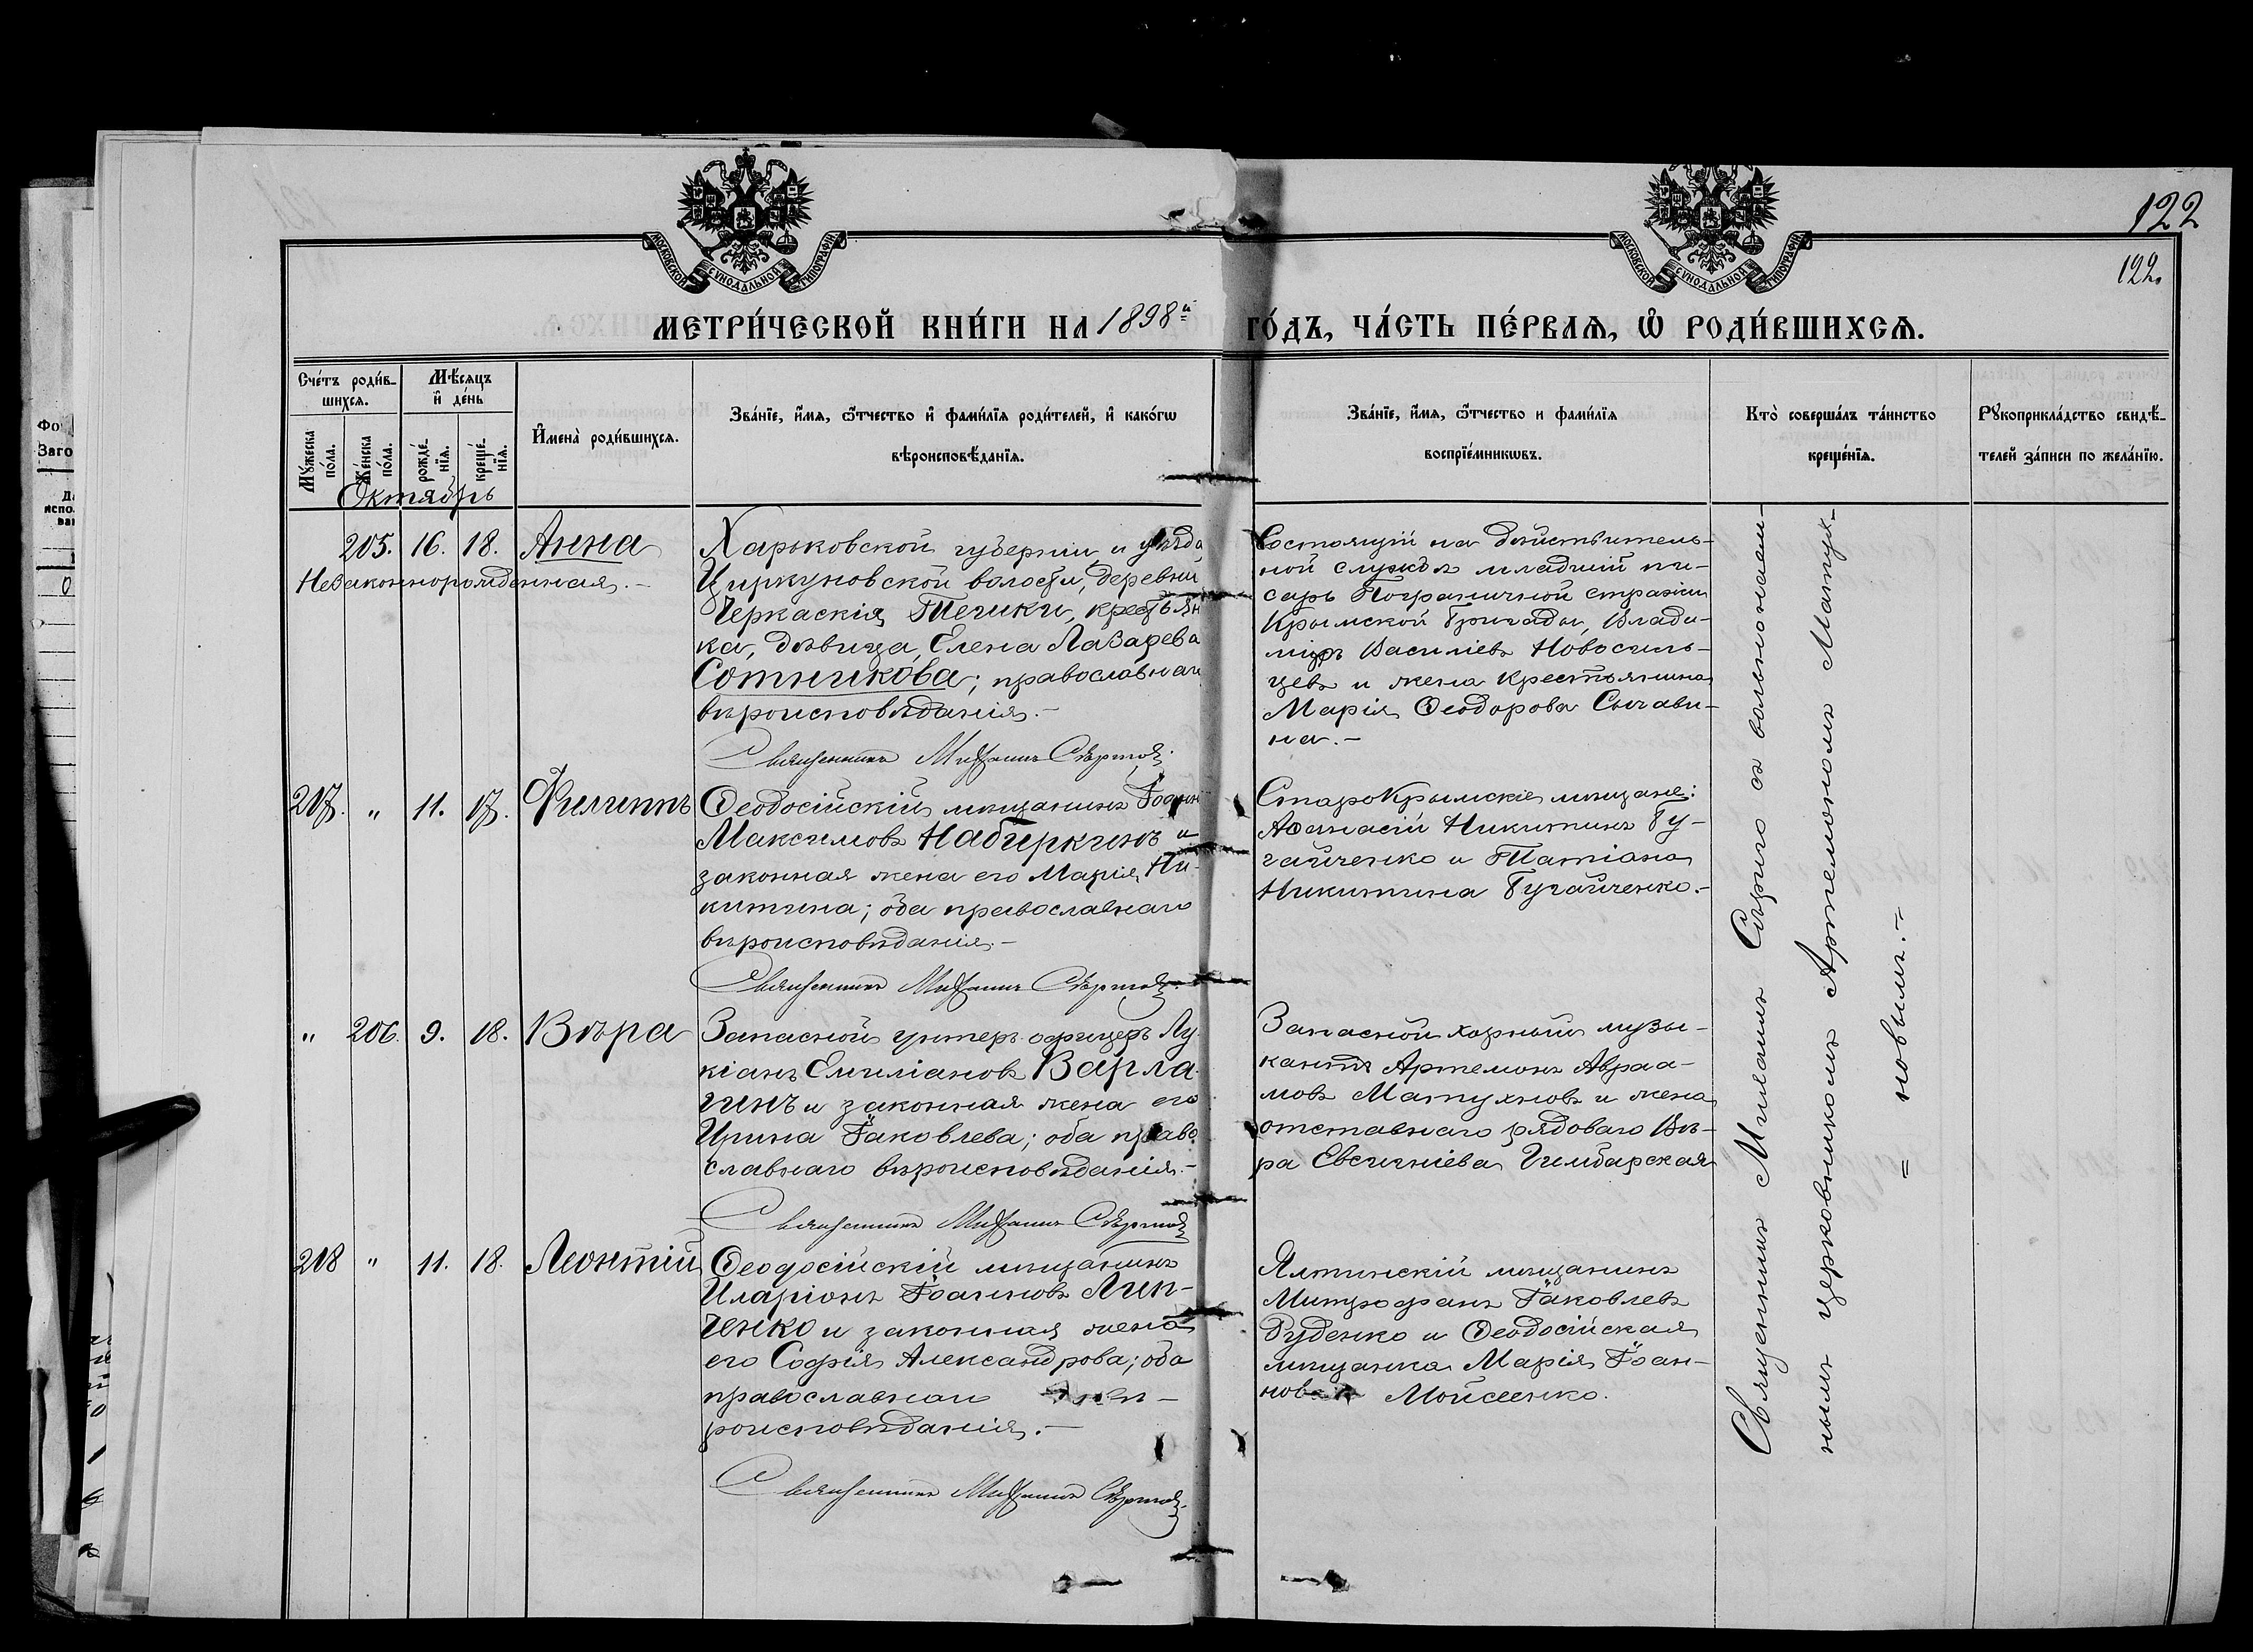 122
122.
МОСКОВСКОЙ СѴНОДАЛЬНОЙ ТИПОГРАФІИ
МОСКОВСКОЙ СѴНОДАЛЬНОЙ ТИПОГРАФІИ
МЕТРИ́ЧЕСКОЙ КНИ́ГИ НА 1898й ГО́ДЪ, ЧА́СТЬ ПЕ́РВАѦ, Ѡ РОДИ́ВШИХСѦ.
Сче́тъ роди́в-
шихсѧ.
Мѣ́сѧцъ
и҆ де́нь
Мꙋ́жеска
по́ла.
Же́нска
по́ла.
рожде́-
нїѧ.
креще́-
нїѧ.
И҆мена̀ роди́вшихсѧ.
Зва́нїе, и҆́мѧ, ѻ҆́тчество и҆ фами́лїѧ роди́телей, и҆ како́гѡ
вѣроисповѣ́данїѧ.
Зва́нїе, и҆́мѧ, ѻ҆́тчество и фами́лїѧ
воспрїе́мникѡвъ.
Кто̀ соверша́лъ та́инство
креще́нїѧ.
Рꙋкоприкла́дство свидѣ́-
телей за́писи по жела́нїю.
Октябрь
205. 16. 18. Анна
Незаконнорожденная.-
Харьковской губерніи и уѣзда
Циркуновской волости, деревни
Черкаскія Тишки, крестьян
ка, дѣвица, Елена Лазарева
Сотникова; православнаго
вѣроисповѣданія.-
Священникъ Михаилъ
Состоящій на дѣйствитель-
ной службѣ младшій пи-
сарь Пограничной стражи
Крымской бригады, Влади-
міръ Василіевъ Новосиль-
цевъ и жена крестьянина
Марія Ѳеодорова Сычави-
на.-
207. " 11. 17. Филиппъ
Ѳеодосійскій мѣщанинъ Іоаннъ
Максимовъ Набиркинъ и
законная жена его Марія Ни-
китина; оба православнаго
вѣроисповѣданія.-
Священникъ Михаилъ
СтароКрымскіе мѣщане:
Аѳанасій Никитинъ Бу-
гайченко и Татіана
Никитина Бугайченко.-
" 206. 9. 18. Вѣра
Запасной унтеръ-офицеръ Лу-
кіанъ Емиліановъ Варла-
гинъ и законная жена его
Ирина Іаковлева; оба право
славнаго вѣроисповѣданія.-
Священникъ Михаилъ
Запасной хорный музы-
кантъ Артемонъ Авраа-
мовъ Матухновъ и жена
отставнаго рядоваго Вѣ-
ра Евсигніева Гимбарская
208 " 11. 18. Леонтій
Ѳеодосійскій мѣщанинъ
Иларіонъ Іоанновъ Лип-
ченко и законная жена
его Софія Александрова; оба
православнаго вѣ-
роисповѣданія.-
Священникъ Михаилъ
Ялтинскій мѣщанинъ
Митрофанъ Іаковлевъ
Руденко и Ѳеодосійская
мѣщанка Марія Іоан-
нова Мойсеенко.
Священникъ Михаилъ съ вольнонаем-
нымъ церковникомъ Артемономъ Матух-
= новымъ.-